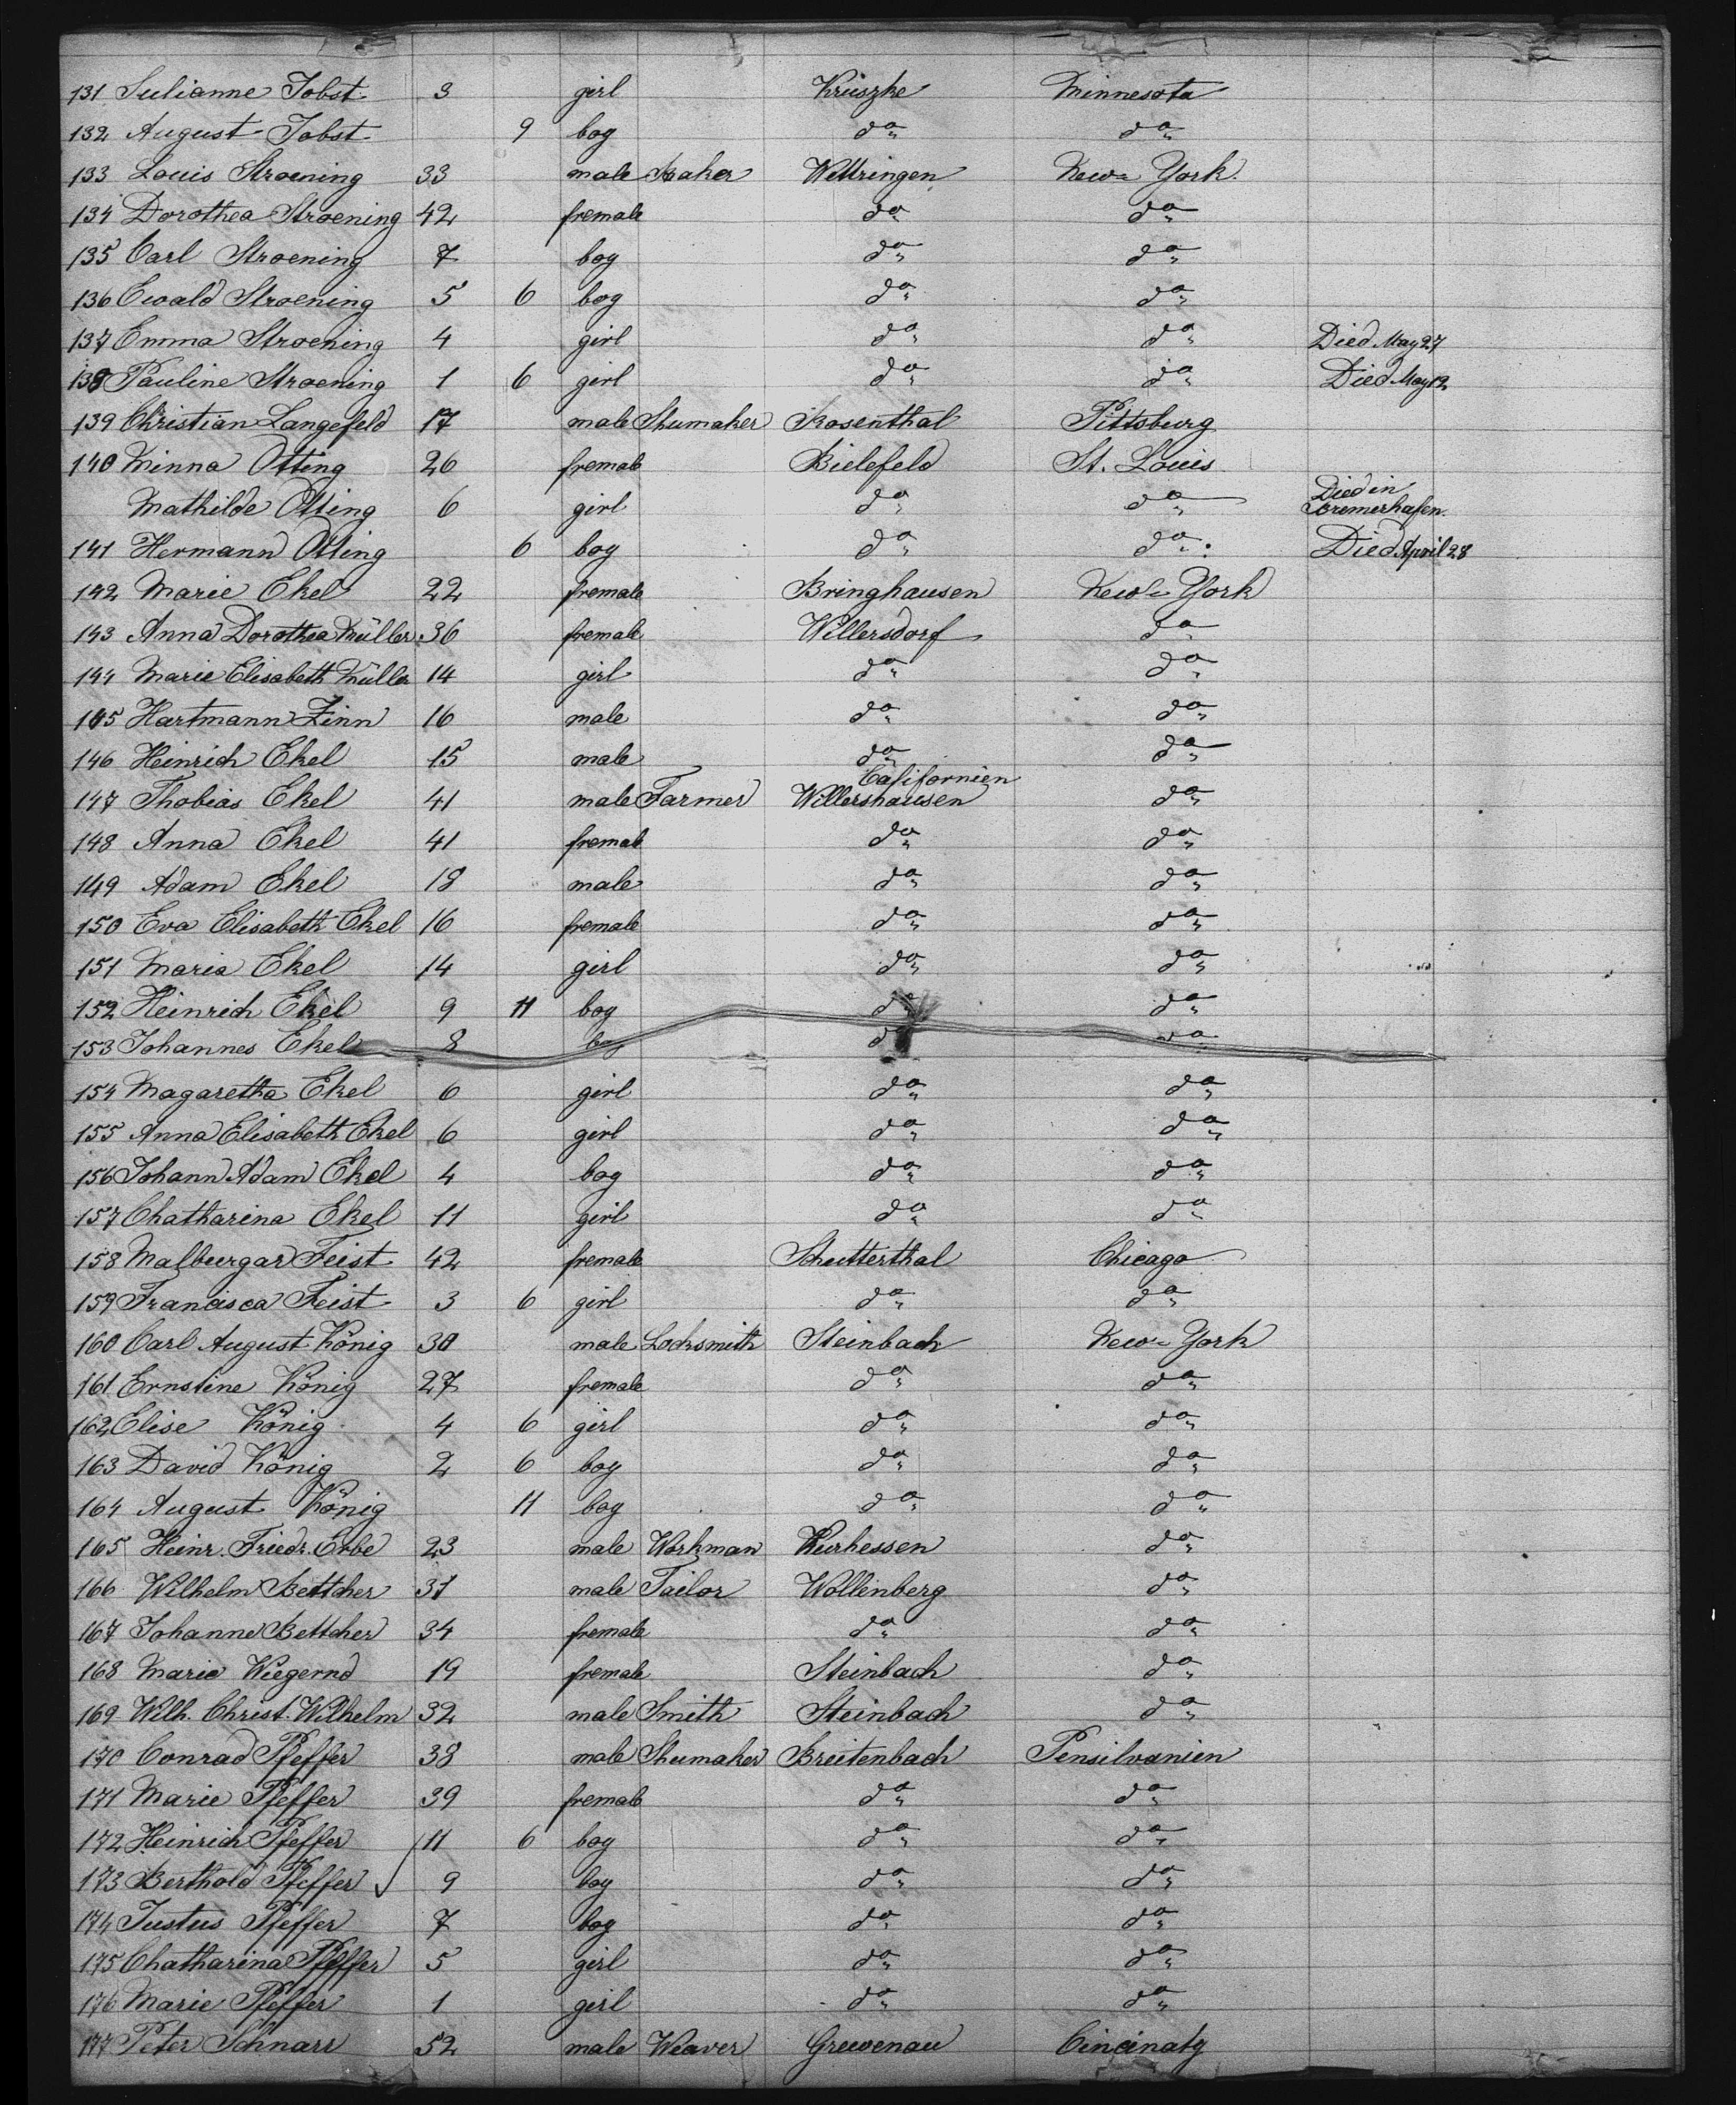 131 Julianne Jobst 3 girl Krüszke Minnesota
132 August Jobst 9 boy do do
133 Louis Stroening 33 male Baker Wettringen New-York.
134 Dorothea Stroening 42 fremale do do
135 Carl Stroening 7 boy do do
136 Ewald Stroening 5 6 boy do do
137 Emma Stroening 4 girl do do Died May 27
138 Pauline Stroening 1 6 girl do do Died May 12
139 Christian Langefeld 17 male Shumaker Rosenthal Pittsburg
140 Minna Otting 26 fremale Bielefeld St. Louis
Mathilde Otting 6 girl do do Died in Bremerhafen.
141 Hermann Otting 6 boy do do Died April 28
142 Marie Ekel 22 fremale Bringhausen New-York
143 Anna Dorothea Müller 36 fremale Willersdorf do
144 Marie Elisabeth Müller 14 girl do do
145 Hartmann Zinn 16 male do do
146 Heinrich Ekel 15 male do do
Californien
147 Thobias Ekel 41 male Farmer Willershausen do
148 Anna Ekel 41 fremale do do
149 Adam Ekel 18 male do do
150 Eva Elisabeth Ekel 16 fremale do do
151 Maria Ekel 14 girl do do
152 Heinrich Ekel 9 11 boy do do
153 Johannes Ekel 8 boy do do
154 Magaretha Ekel 6 girl do do
155 Anna Elisabeth Ekel 6 girl do do
156 Johann Adam Ekel 4 boy do do
157 Chatharina Ekel 11 girl do do
158 Malburgar Feist 42 fremale Schutterthal Chicago
159 Francisca Feist 3 6 girl do do
160 Carl August König 30 male Locksmith Steinbach New-York
161 Ernstine König 27 fremale do do
162 Elise König 4 6 girl do do
163 David König 2 6 boy do do
164 August König 11 boy do do
165 Heinr. Friedr. Erbe 23 male Workman Kurhessen do
166 Wilhelm Bettcher 31 male Tailor Wollenberg do
167 Johanne Bettcher 34 fremale do do
168 Marie Wiegernd 19 fremale Steinbach do
169 Wilh. Christ. Wilhelm 32 male Smith Steinbach do
170 Conrad Pfeffer 38 male Shumaker Breitenbach Pensilvanien
171 Marie Pfeffer 39 fremale do do
172 Heinrich Pfeffer 11 6 boy do do
173 Berthold Pfeffer 9 boy do do
174 Justus Pfeffer 7 boy do do
175 Chatharina Pfeffer 5 girl do do
176 Marie Pfeffer 1 girl do do
177 Peter Schnarr 52 male Weaver Grewenau Cincinaty